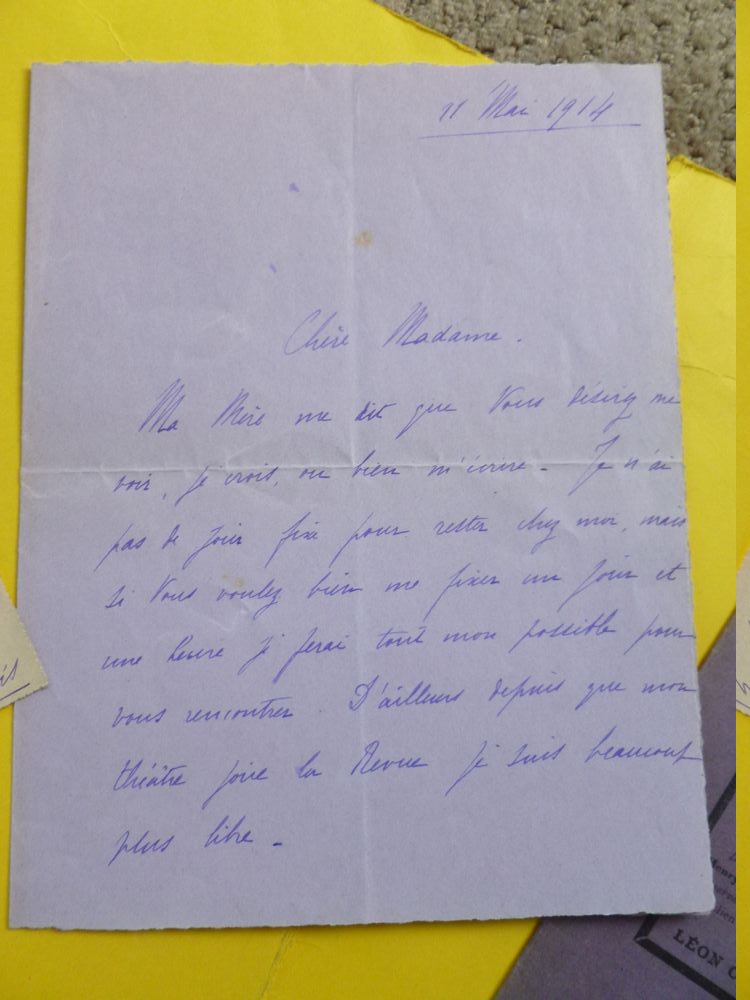 11 Mai 1914
Chère Madame.
Ma Mère me dit que Vous désirez me
voir, je crois, ou bien m'écrire - Je n'ai
pas de jour fixe pour rester chez moi, mais
si Vous voulez bien me fixer un jour et
une heure je ferai tout mon possible pour
vous rencontrer. D'ailleurs depuis que mon
théâtre joue la Revue je suis beaucoup
plus libre -
LÉON